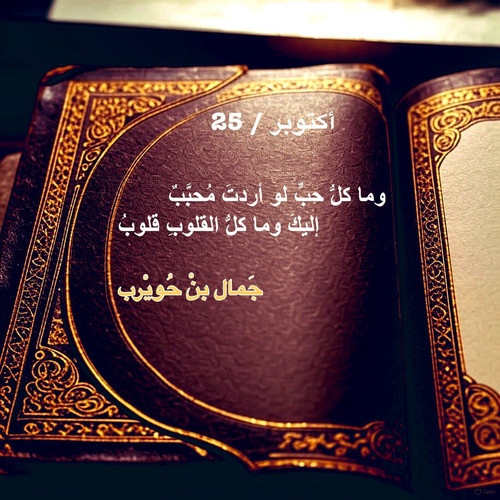 أكتوبر / 25
وما كلُّ حبٍّ لو أردتَ مُحبَّبٌ
إليكَ وما كلُّ القلوبِ قلوبُ
جَمال بنْ حُويْرب